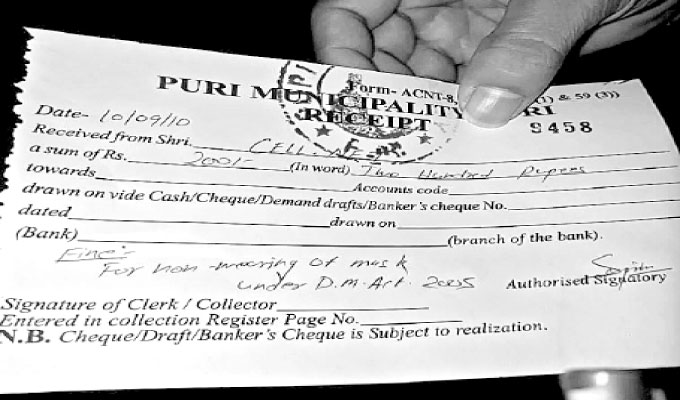 Form- ACNT-8, (1) & 59 (3))
PURI MUNICIPALITY, PURI
RECEIPT 9458
Date- 10/09/10
Received from Shri.
a sum of Rs. 200/- (In word) Two Hundred Rupees
towards Accounts code
drawn on vide Cash/Cheque/Demand drafts/Banker's cheque No.
dated drawn on
(Bank) (branch of the bank).
Fine:-
For non-wearing of mask
under D.M. Act. 2005
Authorised Signatory
Signature of Clerk / Collector
Entered in collection Register Page No.
N.B. Cheque/Draft/Banker's Cheque is Subject to realization.